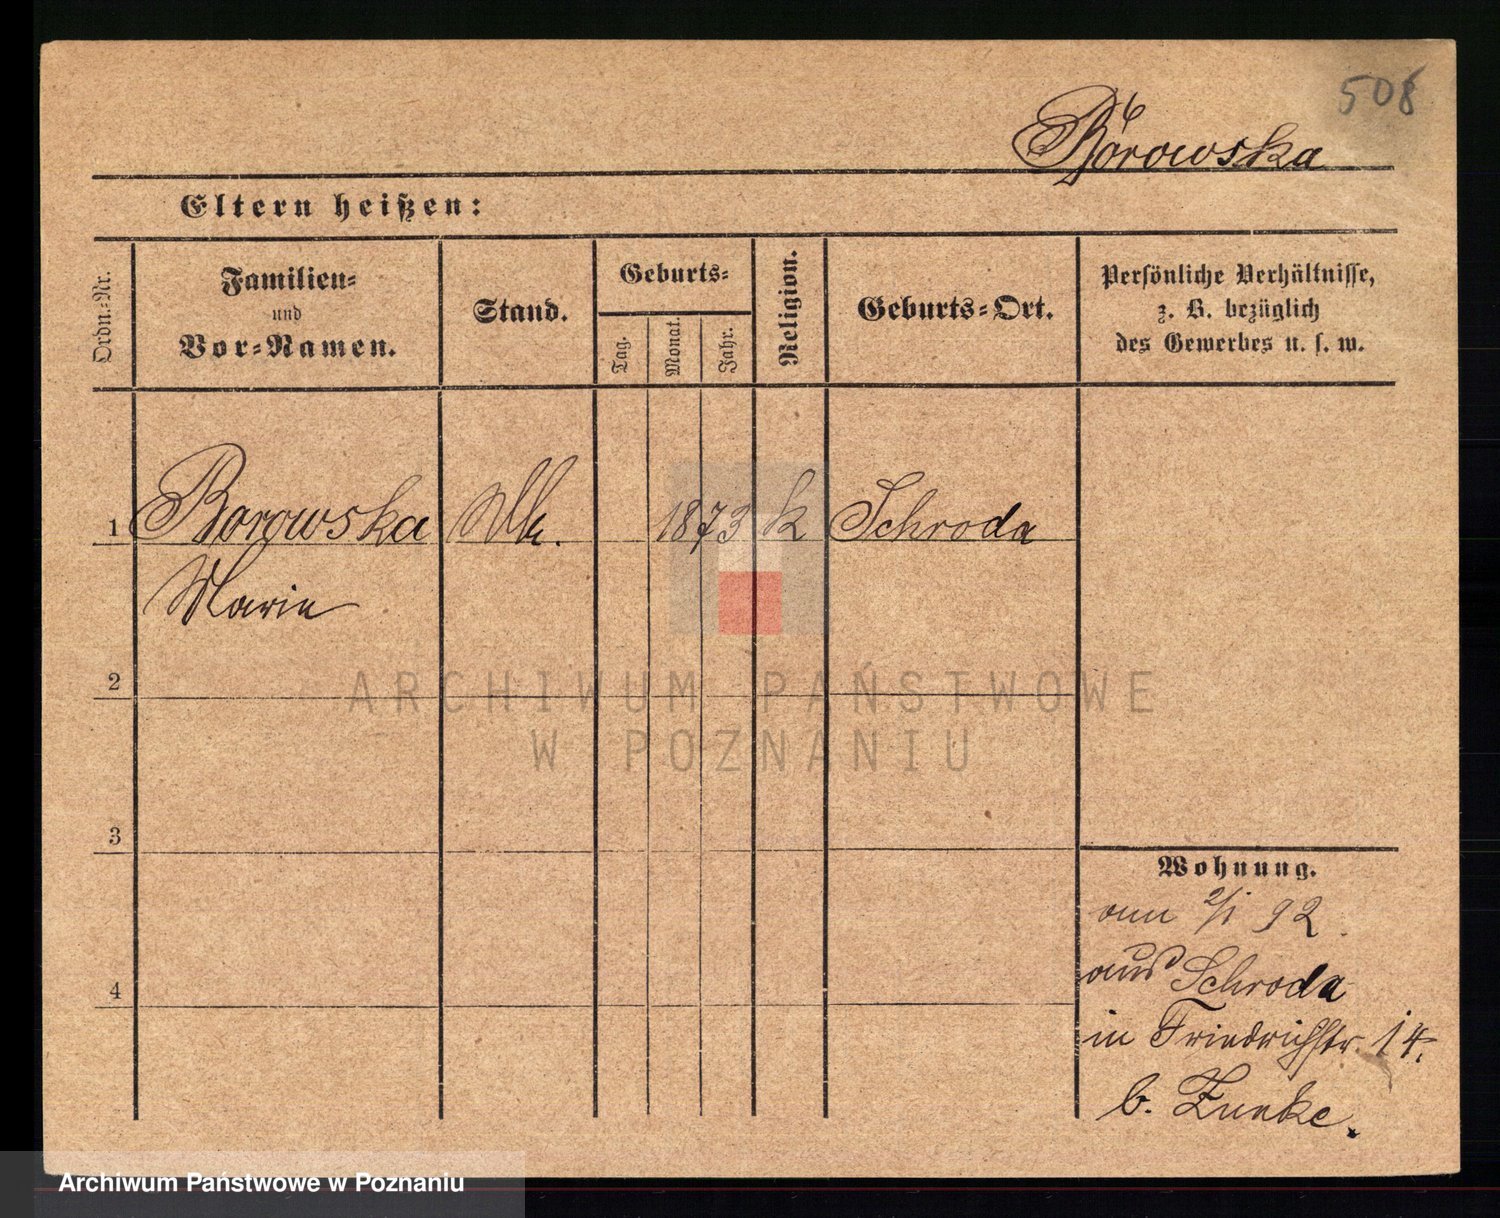 508
Borowska
Eltern heißen:
Ordn.-Nr.
Familien-
und
Vor-Namen.
Stand.
Geburts-
Tag.
Monat.
Jahr.
Religion.
Geburts-Ort.
Persönliche Verhältnisse,
z. B. bezüglich
des Gewerbes u. s. w.
1 Borowska 1873 k Schroda
Marie
2
3
4
Wohnung.
am 2/1 92.
aus Schroda
in Friedrichstr. 14.
b.
ARCHIWUM PAŃSTWOWE
W POZNANIU
Archiwum Państwowe w Poznaniu